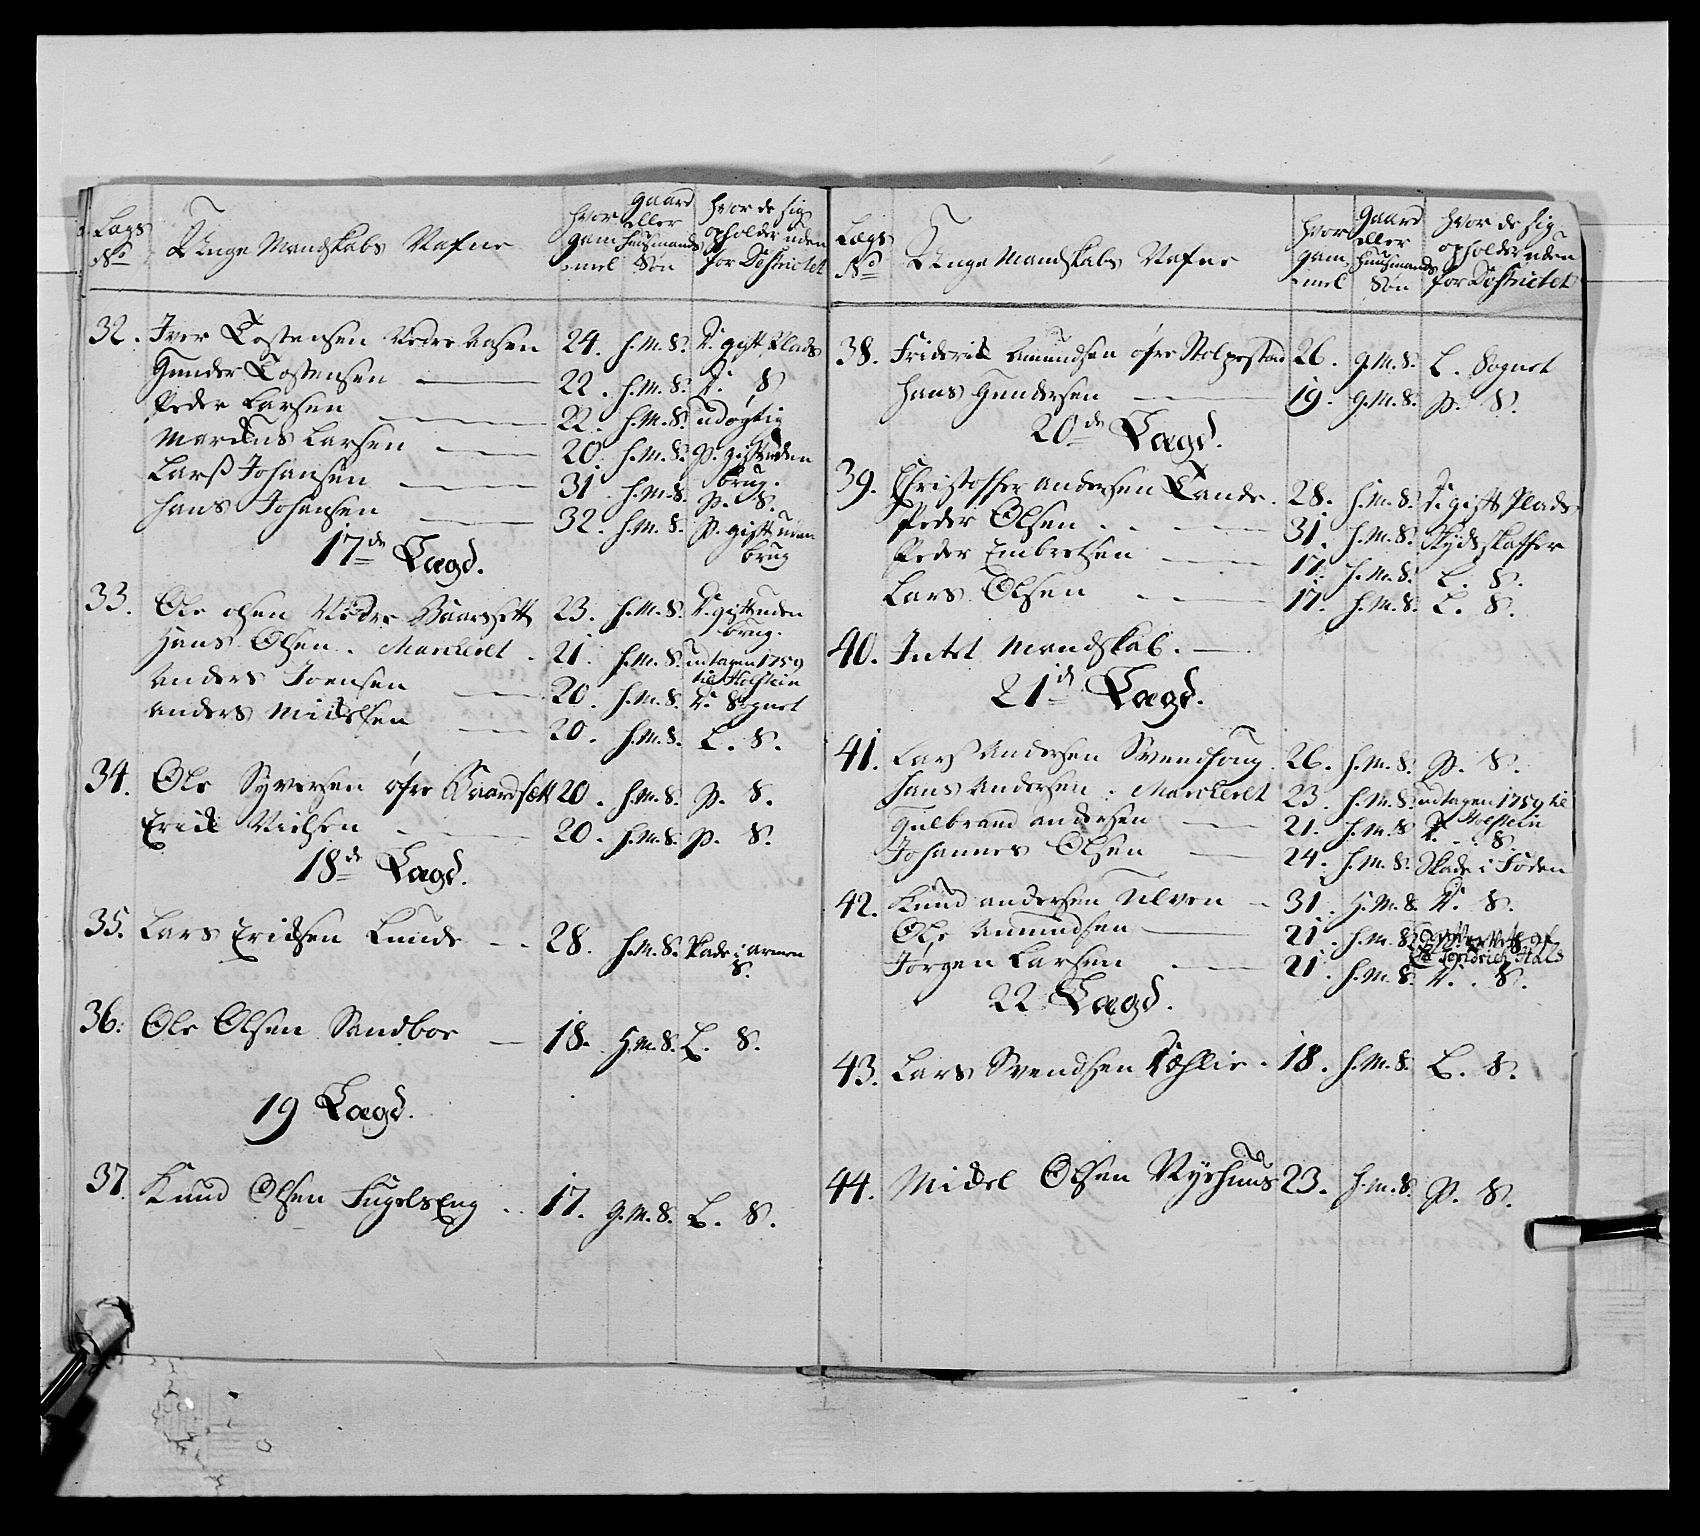 Lægs No Unge Mandskabs Nafne hvor gammel gaard eller huusmands Søn hvor de sig opholder uden for Districtet
32. Iver Tostensen Nedre Aasen 24. h.M.S. T. gift Plads
Gunder Tostensen 22. h.M.S. T. S
Peder Larsen 22. h.M.S. udøgtig
Marcus Larsen 20. h.M.S. P. gift uden brug.
Larss Johansen 31. h.M.S. P. S.
Hans Johansen 32. h.M.S. P. gift uden brug
17de Lægd.
33. Ole olsen Nedre Baarsett 23. h.M.S. T. gift uden brug.
Hans Olsen. Marckeret. 21. h.M.S. udtagen 1759 til Holstein
Anders Joensen 20. h.M.S. T. Sognet
Anders Mickelsen 20. h.M.S. L. S.
34. Ole Syversen øfre Baardsætt 20. h.M.S. P. S.
Erick Nielsen 20. h.M.S. P. S.
18de Lægd.
35. Lars Ericksen Lunde 28. h.M.S. skade i Armen S.
36. Ole Olsen Sandboe 18. h.M.S. L. S.
19 Lægd.
37. Knud Olsen FugelsEng 17. g.M.S. L. S.
Lægs No Unge Mandskabs Nafne hvor gammel gaard eller huusmands Søn hvor de sig opholder uden for Districtet
38. Friderick Amundsen øfre Stolpestad 26. g.M.S. L. Sognet
Hans Gundersen 19. g.M.S. P. S.
20de Lægd.
39. Christoffer Andersen Tande. 28. h.M.S. T. gift Plads
Peder Olsen 31. h.M.S. Skydskaffer
Peder Embretsen 17. h.M.S. L. S.
Lars Olsen 17. h.M.S. L. S.
40. Intet Mandskab.
21de Lægd.
41. Lars Andersen Svendhoug 26. h.M.S. P. S.
Hans Andersen. Marckeret 23. h.M.S. udtagen 1759 til Holstein
Gulbrand andersen 21. h.M.S. T. S.
Johannes Olsen 24. h.M.S. Skade i Foden
42. Knud andersen Ulven 31. h.M.S. T. S.
Ole Amundsen 21. h.M.S.
Jørgen Larsen 21. h.M.S. T. S.
22 Lægd.
43. Lars Svendsen 18. h.M.S. L. S.
44. Mickel Olsen Nyehuus 23. h.M.S. P. S.